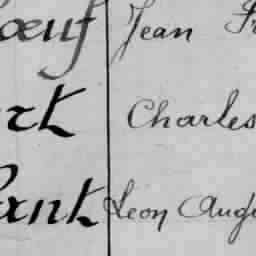 œuf Jean
rk Charles
ank Leon Augu